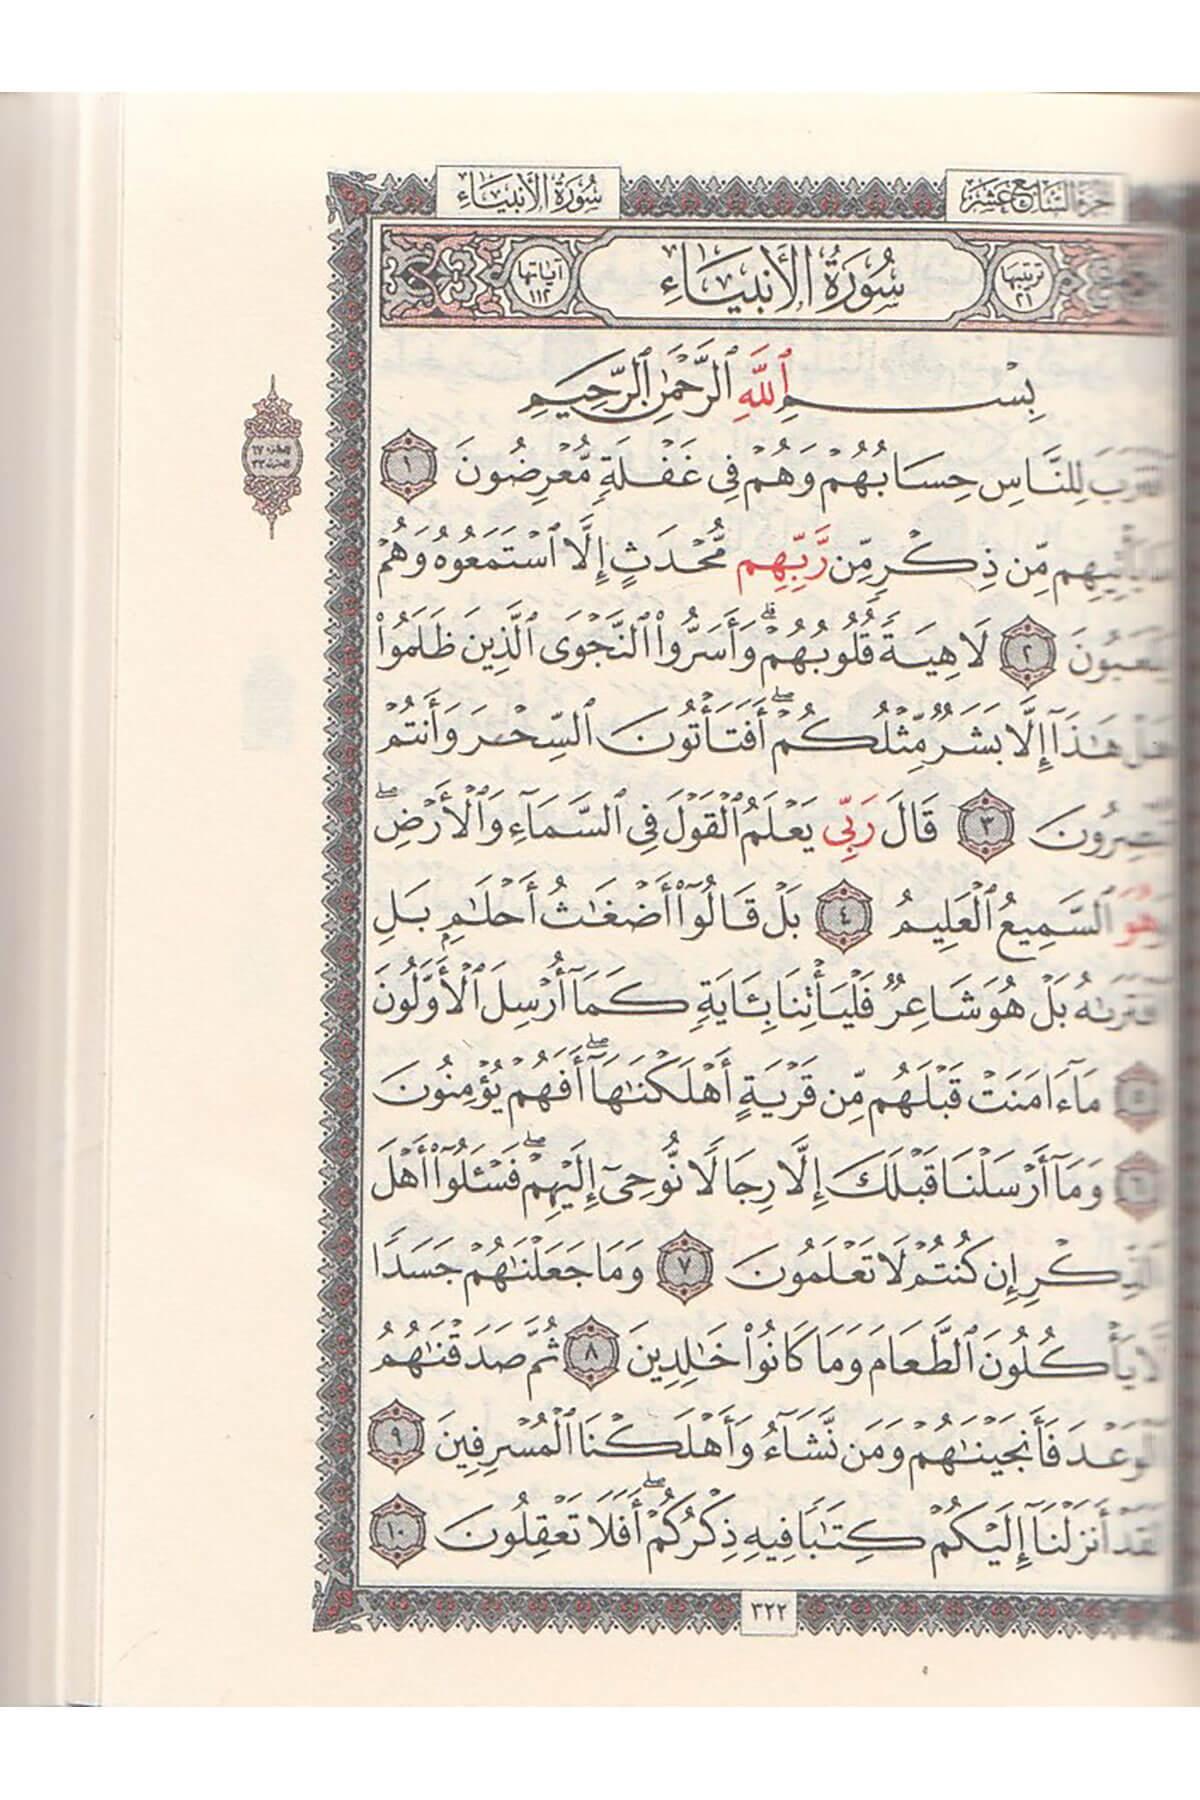 الجزء السابع عشر
سورة الأنبياء
ترتيبها ٢١
سُورَةُ الأَنبِيَاءِ
آياتها ١١٢
بِسْمِ ٱللَّهِ ٱلرَّحْمَٰنِ ٱلرَّحِيمِ
ٱقْتَرَبَ لِلنَّاسِ حِسَابُهُمْ وَهُمْ فِى غَفْلَةٍ مُّعْرِضُونَ ١
مَا يَأْتِيهِم مِّن ذِكْرٍ مِّن رَّبِّهِم مُّحْدَثٍ إِلَّا ٱسْتَمَعُوهُ وَهُمْ
يَلْعَبُونَ ٢ لَاهِيَةً قُلُوبُهُمْ ۗ وَأَسَرُّوا۟ ٱلنَّجْوَى ٱلَّذِينَ ظَلَمُوا۟
هَلْ هَٰذَآ إِلَّا بَشَرٌ مِّثْلُكُمْ ۖ أَفَتَأْتُونَ ٱلسِّحْرَ وَأَنتُمْ
تُبْصِرُونَ ٣ قَالَ رَبِّى يَعْلَمُ ٱلْقَوْلَ فِى ٱلسَّمَآءِ وَٱلْأَرْضِ ۖ
وَهُوَ ٱلسَّمِيعُ ٱلْعَلِيمُ ٤ بَلْ قَالُوٓا۟ أَضْغَٰثُ أَحْلَٰمٍۭ بَلِ
ٱفْتَرَىٰهُ بَلْ هُوَ شَاعِرٌ فَلْيَأْتِنَا بِـَٔايَةٍ كَمَآ أُرْسِلَ ٱلْأَوَّلُونَ
٥ مَآ ءَامَنَتْ قَبْلَهُم مِّن قَرْيَةٍ أَهْلَكْنَٰهَآ ۖ أَفَهُمْ يُؤْمِنُونَ
٦ وَمَآ أَرْسَلْنَا قَبْلَكَ إِلَّا رِجَالًا نُّوحِىٓ إِلَيْهِمْ ۖ فَسْـَٔلُوٓا۟ أَهْلَ
ٱلذِّكْرِ إِن كُنتُمْ لَا تَعْلَمُونَ ٧ وَمَا جَعَلْنَٰهُمْ جَسَدًا
لَّا يَأْكُلُونَ ٱلطَّعَامَ وَمَا كَانُوا۟ خَٰلِدِينَ ٨ ثُمَّ صَدَقْنَٰهُمُ
ٱلْوَعْدَ فَأَنجَيْنَٰهُمْ وَمَن نَّشَآءُ وَأَهْلَكْنَا ٱلْمُسْرِفِينَ ٩
لَقَدْ أَنزَلْنَآ إِلَيْكُمْ كِتَٰبًا فِيهِ ذِكْرُكُمْ ۖ أَفَلَا تَعْقِلُونَ ١٠
٣٢٢